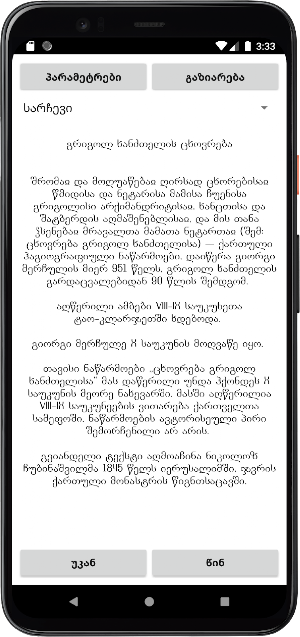 3:33
პარამეტრები გაზიარება
სარჩევი
გრიგოლ ხანძთელის ცხოვრება
შრომაჲ და მოღუაწებაჲ ღირსად ცხორებისაჲ
წმიდისა და ნეტარისა მამისა ჩუენისა
გრიგოლისი არქიმანდრიტისაჲ, ხანცთისა და
შატბერდის აღმაშენებელისაჲ, და მის თანა
ჴსენებაჲ მრავალთა მამათა ნეტართაჲ (შემ:
ცხოვრება გრიგოლ ხანძთელისა) — ქართული
ჰაგიოგრაფიული ნაწარმოები. დაიწერა გიორგი
მერჩულის მიერ 951 წელს, გრიგოლ ხანძთელის
გარდაცვალებიდან 90 წლის შემდგომ.
აღწერილი ამბები VIII-IX საუკუნეთა
ტაო-კლარჯეთში ხდებოდა.
გიორგი მერჩულე X საუკუნის მოღვაწე იყო.
თავისი ნაწარმოები „ცხოვრება გრიგოლ
ხანძთელისა" მას დაწერილი უნდა ჰქონდეს X
საუკუნის მეორე ნახევარში. მასში აღწერილია
VIII-IX საუკუნეების ვითარება ქართველთა
სამეფოში. ნაწარმოების ავტორისეული პირი
შემორჩენილი არ არის.
გვიანდელი ტექსტი აღმოაჩინა ნიკოლოზ
ჩუბინაშვილმა 1845 წელს იერუსალიმში, ჯვრის
ქართული მონასტრის წიგნთსაცავში.
უკან წინ